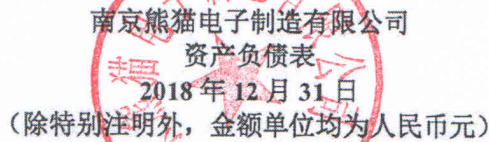 南京熊猫电子制造有限公司
资产负债表
2018 年 12 月 31 日
（除特别注明外，金额单位均为人民币元）